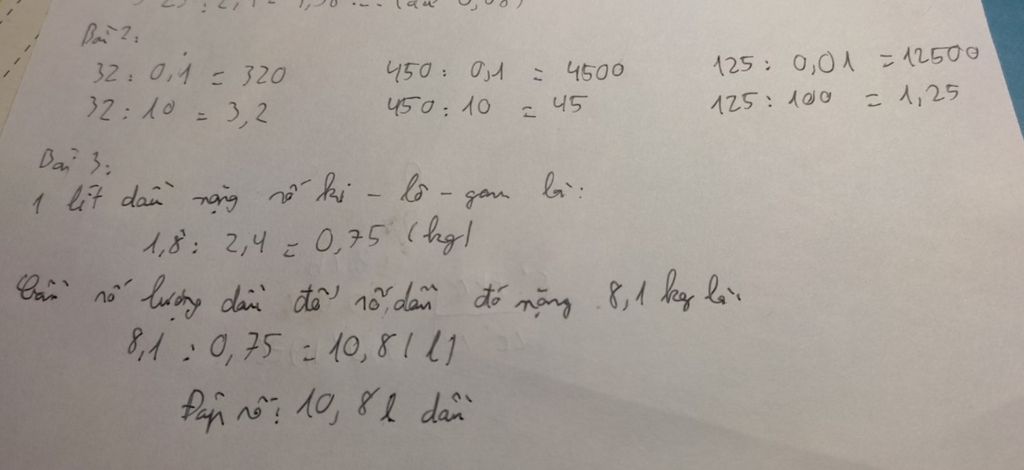 Bài 2:
32 : 0,1 = 320 450 : 0,1 = 4500 125 : 0,01 = 12500
32 : 10 = 3,2 450 : 10 = 45 125 : 100 = 1,25
Bài 3:
1 lít dầu nặng số ki - lô - gam là:
1,8 : 2,4 = 0,75 (kg)
số lượng dầu để số dầu đó nặng 8,1 kg là:
8,1 : 0,75 = 10,8 (l)
Đáp số: 10,8 l dầu